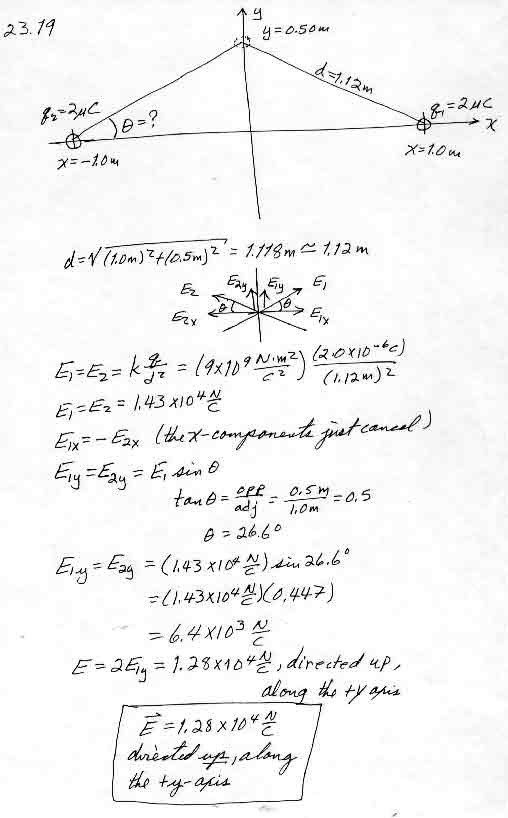 23.19
y
y = 0.50 m
d = 1.12 m
q₂ = 2 μC
θ = ?
q₁ = 2 μC
x
x = -1.0 m
x = 1.0 m
d = √(1.0m)² + (0.5m)² = 1.118 m ≃ 1.12 m
E₂ E₂y E₁y E₁
θ θ
E₂x E₁x
E₁ = E₂ = k q/d² = (9 x 10⁹ N·m²/C²) (2.0 x 10⁻⁶ C)/(1.12 m)²
E₁ = E₂ = 1.43 x 10⁴ N/C
E₁x = - E₂x (the x-components just cancel)
E₁y = E₂y = E₁ sin θ
tan θ = opp/adj = 0.5 m/1.0 m = 0.5
θ = 26.6°
E₁y = E₂y = (1.43 x 10⁴ N/C) sin 26.6°
= (1.43 x 10⁴ N/C)(0.447)
= 6.4 x 10³ N/C
E = 2E₁y = 1.28 x 10⁴ N/C, directed up,
along the +y axis
E⃗ = 1.28 x 10⁴ N/C
directed up, along
the +y-axis